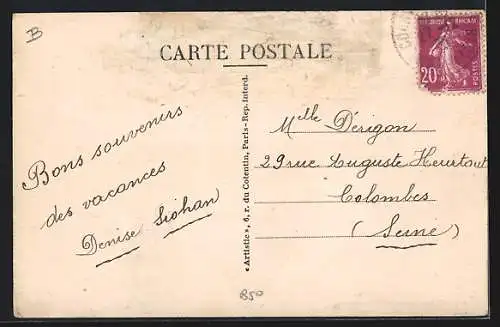 B
CARTE POSTALE
20c
POSTES
Bons souvenirs
des vacances
Denise Siohan
«Artistic», 6, r. du Cotentin, Paris-Rep. Interd.
Melle Dérigon
29 rue Auguste Heurtout
Colombes
(Seine)
850